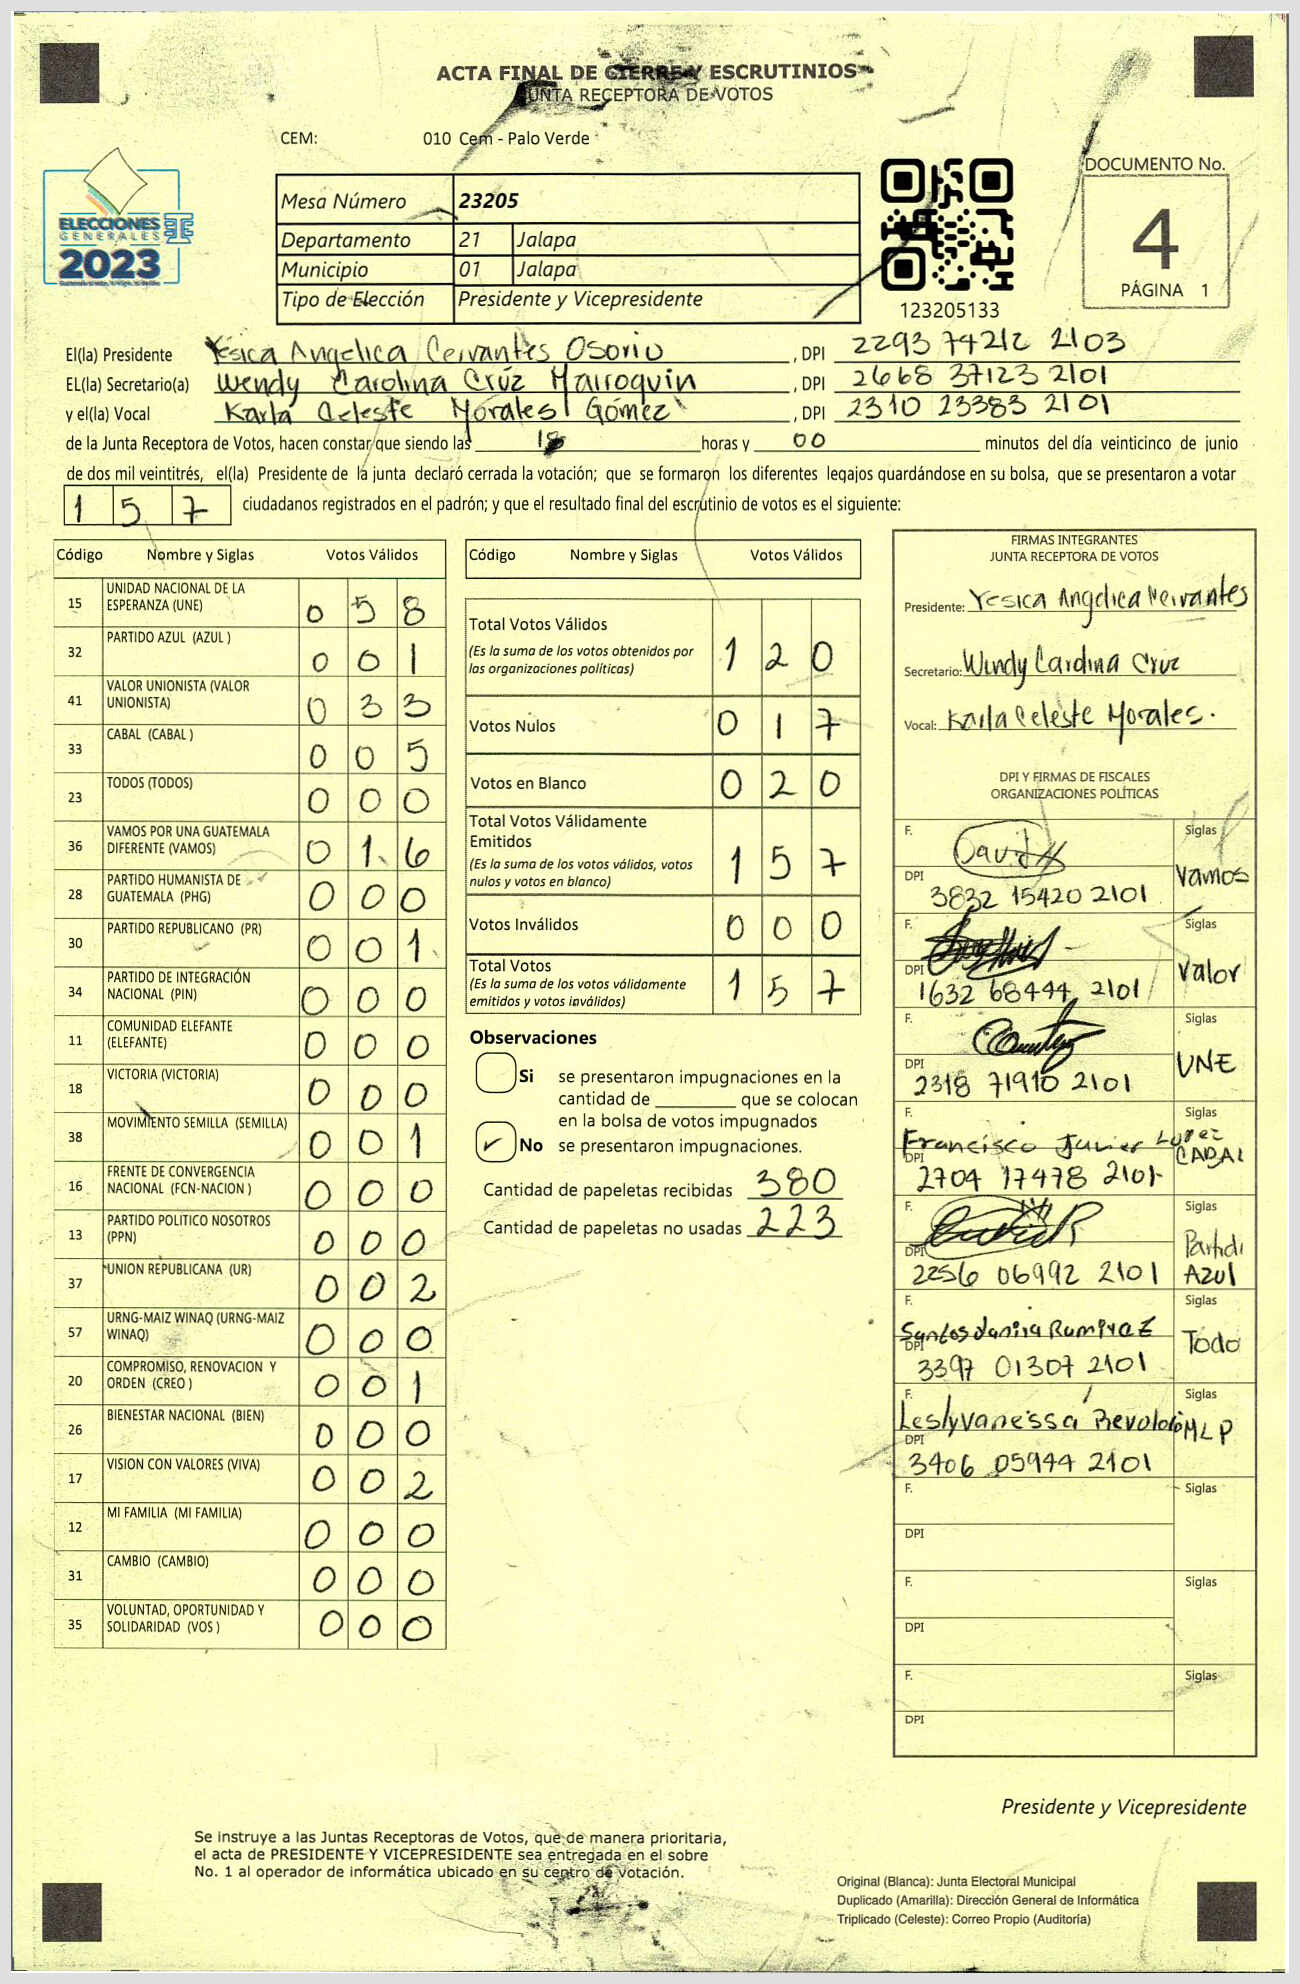 ACTA FINAL DE CIERRE Y ESCRUTINIOS
JUNTA RECEPTORA DE VOTOS
CEM: 010 Cem - Palo Verde
ELECCIONES
GENERALES
2023
Mesa Número 23205
Departamento 21 Jalapa
Municipio 01 Jalapa
Tipo de Elección Presidente y Vicepresidente
123205133
DOCUMENTO No.
4
PÁGINA 1
El(la) Presidente Yesica Angelica Cervantes Osorio , DPI 2293 74212 2103
EL(la) Secretario(a) Wendy Carolina Crúz Marroquin , DPI 2668 37123 2101
y el(la) Vocal Karla Celeste Morales Gómez , DPI 2310 23383 2101
de la Junta Receptora de Votos, hacen constar que siendo las 18 horas y 00 minutos del día veinticinco de junio
de dos mil veintitrés, el(la) Presidente de la junta declaró cerrada la votación; que se formaron los diferentes legajos guardándose en su bolsa, que se presentaron a votar
157 ciudadanos registrados en el padrón; y que el resultado final del escrutinio de votos es el siguiente:
Código Nombre y Siglas Votos Válidos
15 UNIDAD NACIONAL DE LA ESPERANZA (UNE) 058
32 PARTIDO AZUL (AZUL ) 001
41 VALOR UNIONISTA (VALOR UNIONISTA) 033
33 CABAL (CABAL ) 005
23 TODOS (TODOS) 000
36 VAMOS POR UNA GUATEMALA DIFERENTE (VAMOS) 016
28 PARTIDO HUMANISTA DE GUATEMALA (PHG) 000
30 PARTIDO REPUBLICANO (PR) 001
34 PARTIDO DE INTEGRACIÓN NACIONAL (PIN) 000
11 COMUNIDAD ELEFANTE (ELEFANTE) 000
18 VICTORIA (VICTORIA) 000
38 MOVIMIENTO SEMILLA (SEMILLA) 001
16 FRENTE DE CONVERGENCIA NACIONAL (FCN-NACION ) 000
13 PARTIDO POLITICO NOSOTROS (PPN) 000
37 UNION REPUBLICANA (UR) 002
57 URNG-MAIZ WINAQ (URNG-MAIZ WINAQ) 000
20 COMPROMISO, RENOVACION Y ORDEN (CREO ) 001
26 BIENESTAR NACIONAL (BIEN) 000
17 VISION CON VALORES (VIVA) 002
12 MI FAMILIA (MI FAMILIA) 000
31 CAMBIO (CAMBIO) 000
35 VOLUNTAD, OPORTUNIDAD Y SOLIDARIDAD (VOS ) 000
Código Nombre y Siglas Votos Válidos
Total Votos Válidos 120
(Es la suma de los votos obtenidos por
las organizaciones politicas)
Votos Nulos 017
Votos en Blanco 020
Total Votos Válidamente
Emitidos 157
(Es la suma de los votos válidos, votos
nulos y votos en blanco)
Votos Inválidos 000
Total Votos 157
(Es la suma de los votos válidamente
emitidos y votos inválidos)
Observaciones
Si se presentaron impugnaciones en la
cantidad de ________ que se colocan
en la bolsa de votos impugnados
✓ No se presentaron impugnaciones.
Cantidad de papeletas recibidas 380
Cantidad de papeletas no usadas 223
FIRMAS INTEGRANTES
JUNTA RECEPTORA DE VOTOS
Presidente: Yesica Angelica Cervantes
Secretario: Wendy Carolina Cruz
Vocal: Karla Celeste Morales.
DPI Y FIRMAS DE FISCALES
ORGANIZACIONES POLÍTICAS
F. David Siglas
DPI 3832 15420 2101 Vamos
F. Siglas
DPI 1632 68444 2101 Valor
F. Siglas
DPI 2318 71910 2101 UNE
F. Francisco Javier Lopez Siglas
DPI 2704 17478 2101 CABAL
F. Siglas
DPI 2256 06992 2101 Partido Azul
F. Santos Janira Ramirez Siglas
DPI 3397 01307 2101 Todo
F. Leslyvanessa Revolorio Siglas
DPI 3406 05944 2101 MLP
F. Siglas
DPI
F. Siglas
DPI
F. Siglas
DPI
Presidente y Vicepresidente
Se instruye a las Juntas Receptoras de Votos, que de manera prioritaria,
el acta de PRESIDENTE Y VICEPRESIDENTE sea entregada en el sobre
No. 1 al operador de informática ubicado en su centro de votación.
Original (Blanca): Junta Electoral Municipal
Duplicado (Amarilla): Dirección General de Informática
Triplicado (Celeste): Correo Propio (Auditoría)